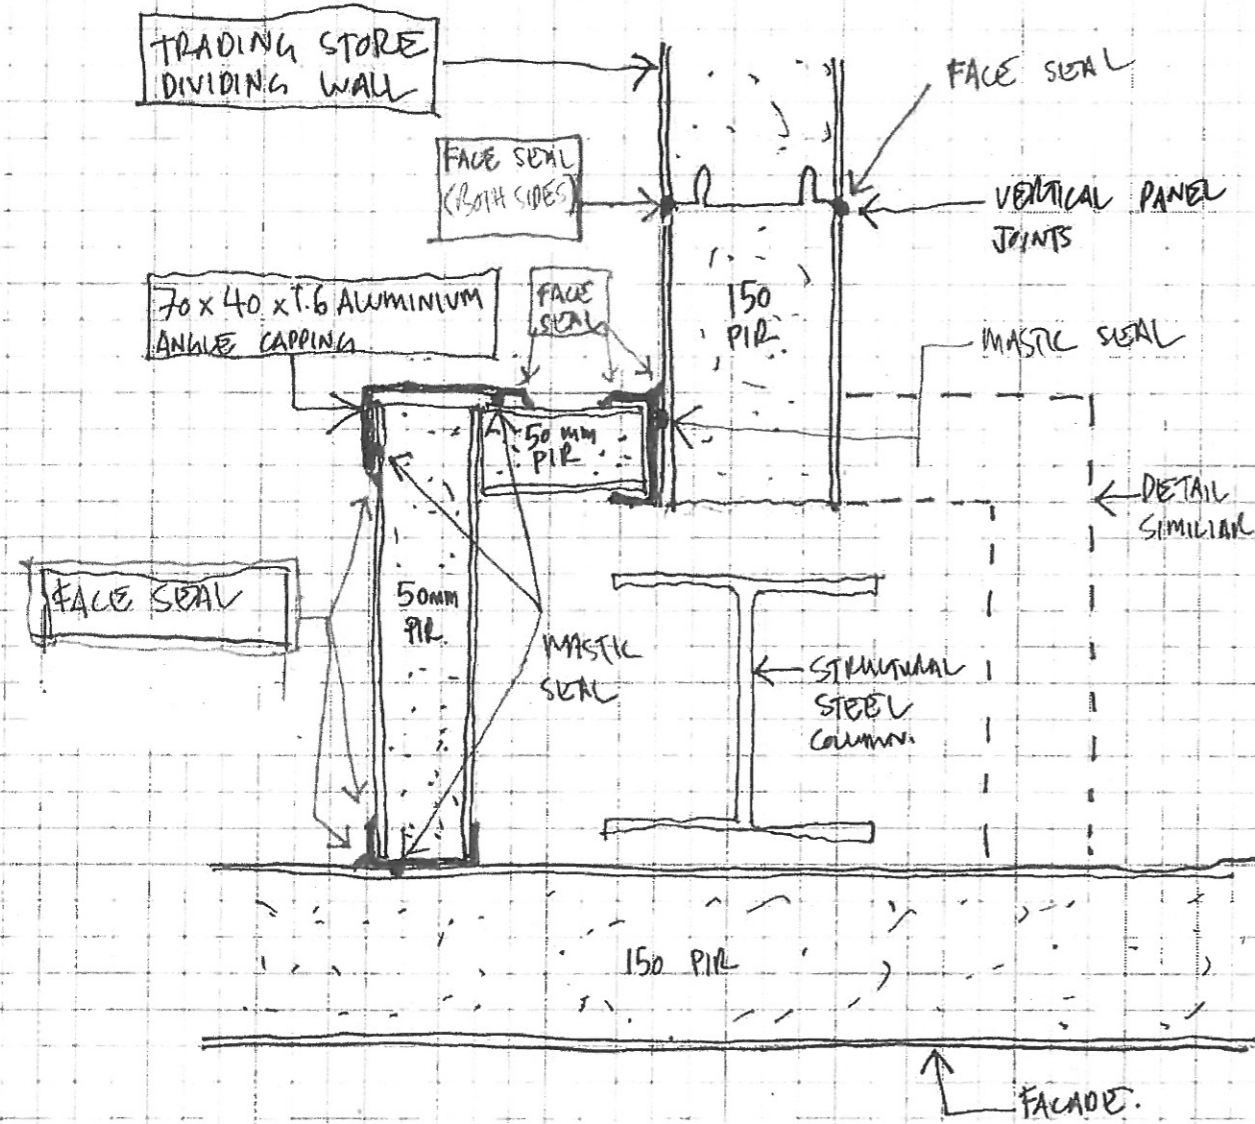 TRADING STORE
DIVIDING WALL
FACE SEAL
FACE SEAL
(BOTH SIDES)
VERTICAL PANEL
JOINTS
70 x 40 x 1.6 ALUMINIUM
ANGLE CAPPING
FACE
SEAL
150
PIR
MASTIC SEAL
50 mm
PIR
DETAIL
SIMILIAR
FACE SEAL
50mm
PIR
MASTIC
SEAL
STRUCTURAL
STEEL
COLUMN.
150 PIR
FACADE.